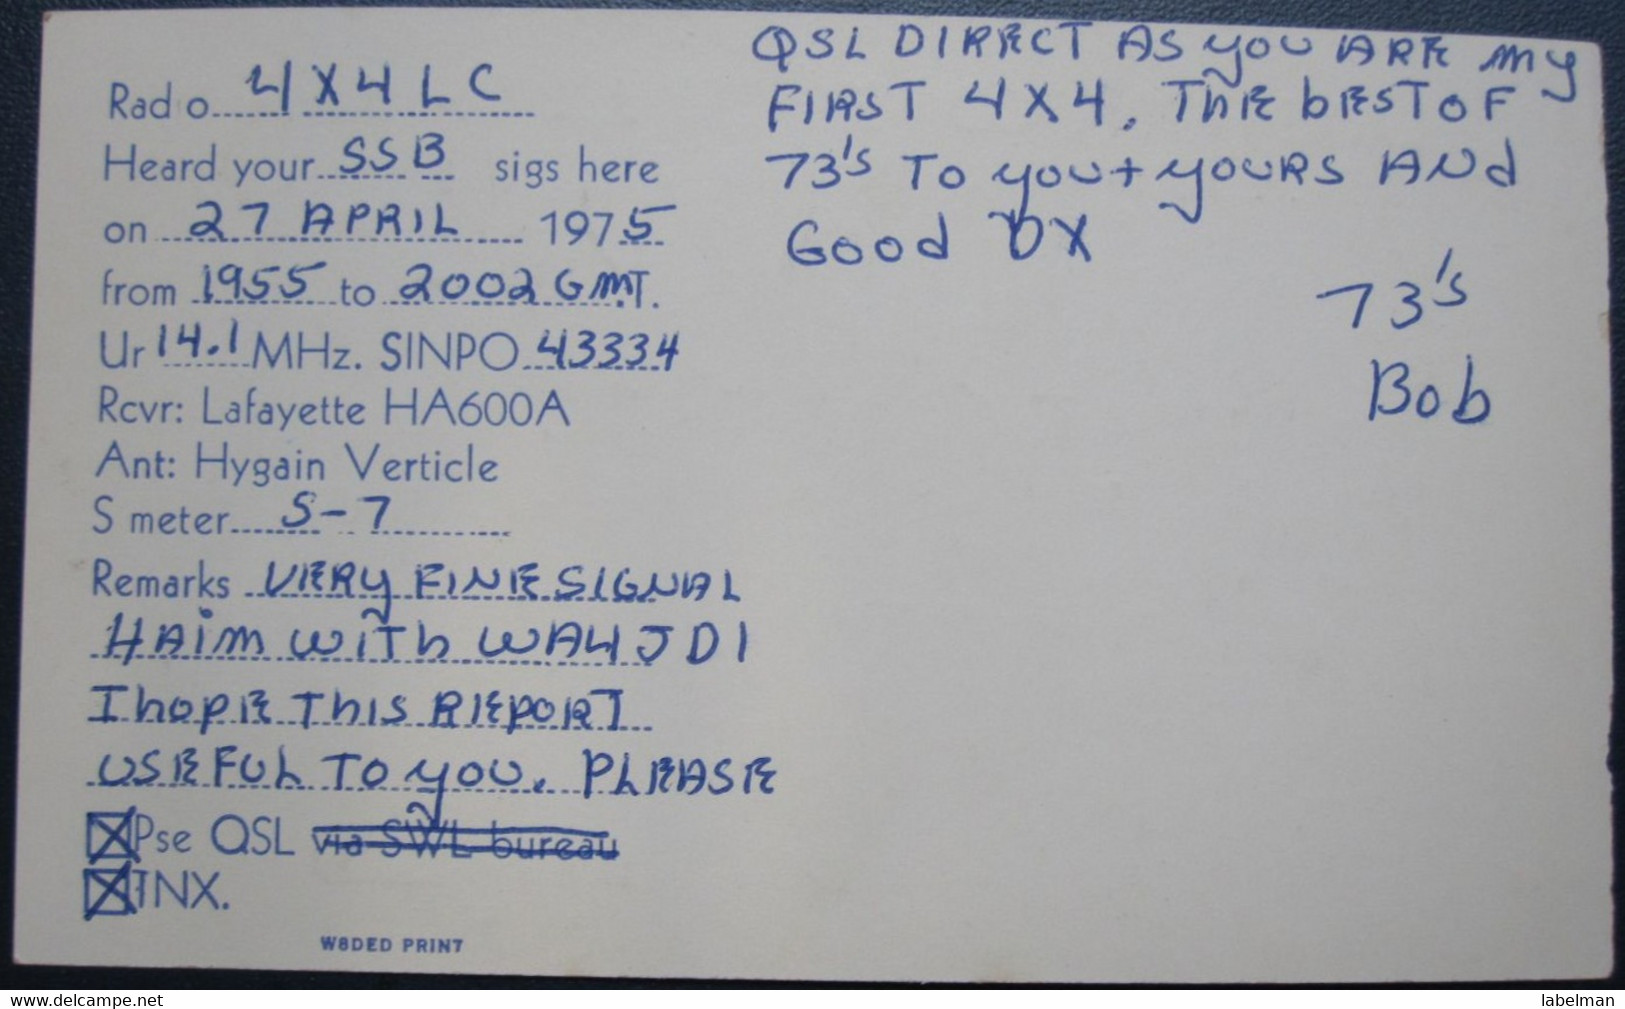 Radio 4X4LC
Heard your SSB sigs here
on 27 APRIL 1975
from 1955 to 2002 GMT.
Ur 14.1 MHz. SINPO 43334
Rcvr: Lafayette HA600A
Ant: Hygain Verticle
S meter S-7
Remarks VERY FINE SIGNAL
HAIM WITH WA4JDI
I HOPE THIS REPORT
USEFUL TO YOU. PLEASE
Pse QSL via SWL bureau
TNX.
W8DED PRINT
QSL DIRECT AS YOU ARE MY
FIRST 4X4. THE BEST OF
73's TO YOU + YOURS AND
GOOD DX
73's
Bob
delcampe.net
labelman